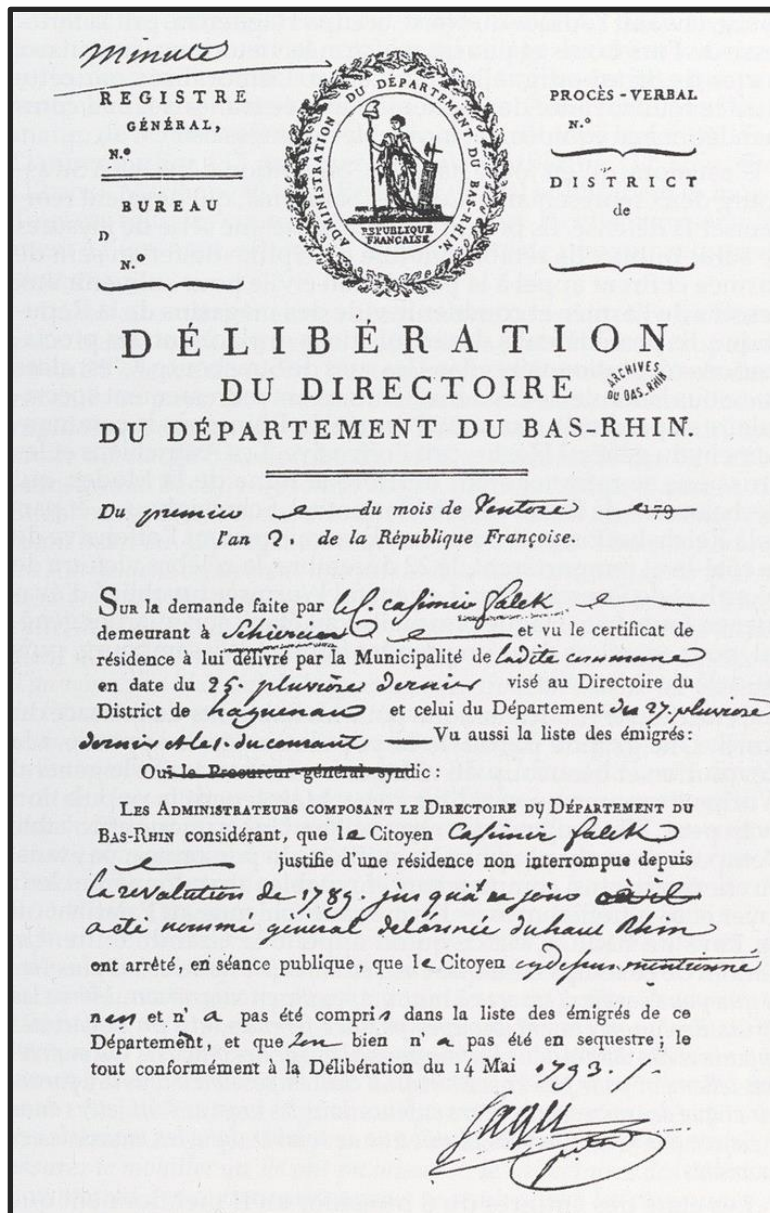 minute
REGISTRE
GÉNÉRAL,
N.º
BUREAU
D
N.º
ADMINISTRATION DU DÉPARTEMENT DU BAS-RHIN.
RÉPUBLIQUE
FRANÇAISE
PROCÈS-VERBAL
N.º
DISTRICT
de
DÉLIBÉRATION
DU DIRECTOIRE
ARCHIVES
DU BAS-RHIN
DU DÉPARTEMENT DU BAS-RHIN.
Du premier du mois de Ventose 179
l'an 2. de la République Françoise.
SUR la demande faite par le C. Casimir Falek
demeurant à et vu le certificat de
résidence à lui délivré par la Municipalité de ladite commune
en date du 25. pluviôse dernier visé au Directoire du
District de haguenau et celui du Département du 27. pluviose
dernier et le 1. du courant Vu aussi la liste des émigrés:
Oui le Procureur-général-syndic:
LES ADMINISTRATEURS COMPOSANT LE DIRECTOIRE DU DÉPARTEMENT DU
BAS-RHIN considérant, que le Citoyen Casimir Falek
justifie d'une résidence non interrompue depuis
la revolution de 1789. jusqu'à ce jour
a été nommé general de l'armée du haut Rhin
ont arrêté, en séance publique, que le Citoyen cydessus mentionné
n'est et n'a pas été compris dans la liste des émigrés de ce
Département, et que son bien n'a pas été en sequestre; le
tout conformément à la Délibération du 14 Mai 1793.